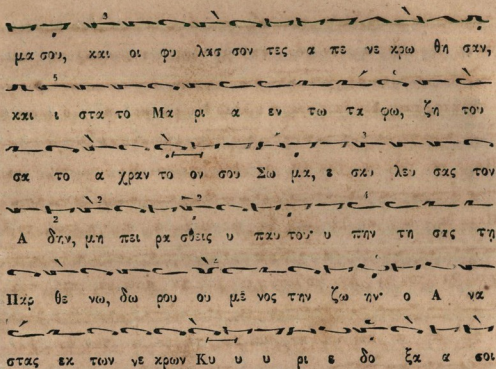 μα σου, και οι φυ λασ σον τες α πε νε κρω θη σαν,
και ι στα το Μα ρι α εν τω τα φω, ζη του
σα το α χραν το ον σου Σω μα, ε σκυ λευ σας τον
Α δην, μη πει ρα σθεις υ παυ του· υ πην τη σας τη
Παρ θε νω, δω ρου ου με νος την ζω ην· ο Α να
στας εκ των νε κρων Κυ υ υ ρι ε δο ξα α σοι